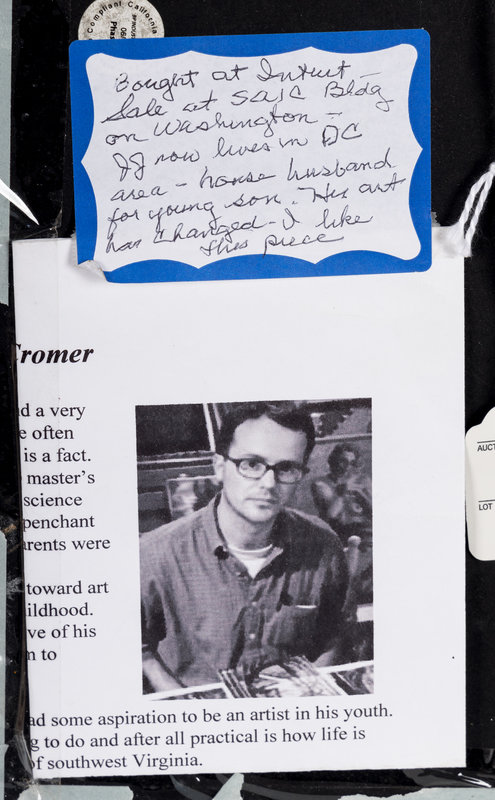 Compliant California
Phas
Bought at Intuit
Sale at SAIC Bldg
on Washington -
JJ now lives in DC
area - house husband
for young son. His art
has changed - I like
this piece
Cromer
d a very
e often
is a fact.
master's
science
penchant
arents were
toward art
ildhood.
ve of his
n to
ad some aspiration to be an artist in his youth.
g to do and after all practical is how life is
of southwest Virginia.
AUCT
LOT